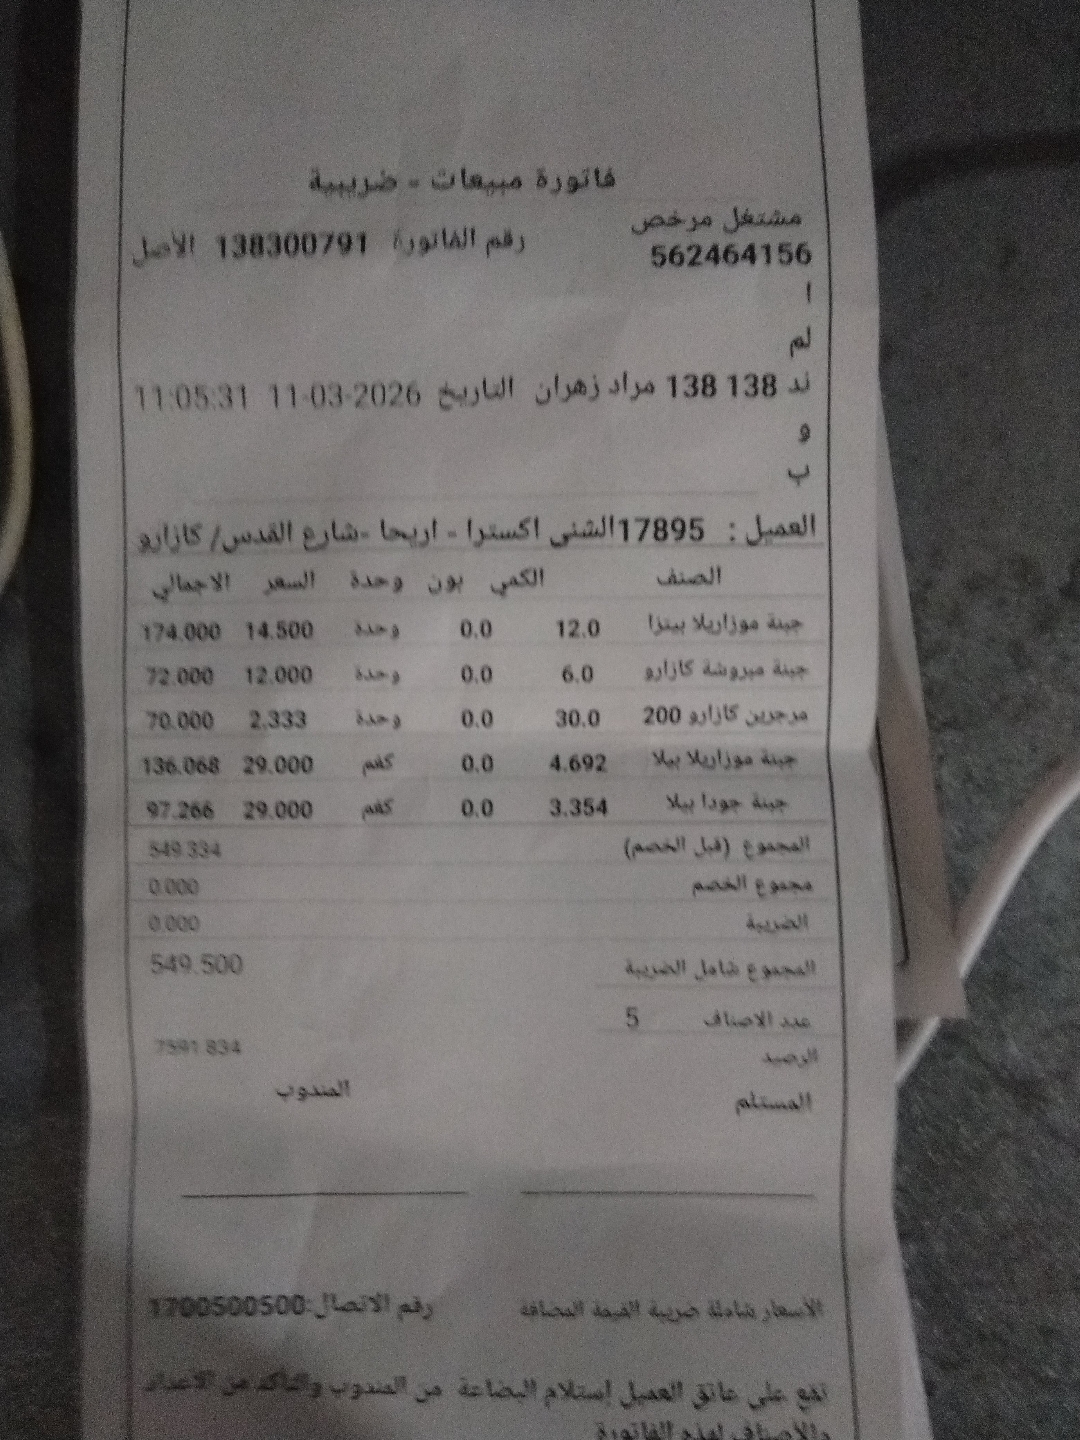 فاتورة مبيعات - ضريبية
مشتغل مرخص
562464156 رقم الفاتورة 138300791 الأصل
ا
لم
ند 138 138 مراد زهران التاريخ 11-03-2026 11:05:31
و
ب
العميل : 17895الشني اكسترا - اريحا -شارع القدس/ كازارو
الصنف الكمي بون وحدة السعر الاجمالي
جبنة موزاريلا بيتزا 12.0 0.0 وحدة 14.500 174.000
جبنة مبروشة كازارو 6.0 0.0 وحدة 12.000 72.000
مرجرين كازارو 200 30.0 0.0 وحدة 2.333 70.000
جبنة موزاريلا بيلا 4.692 0.0 كغم 29.000 136.068
جبنة جودا بيلا 3.354 0.0 كغم 29.000 97.266
المجموع (قبل الخصم) 549.334
مجموع الخصم 0.000
الضريبة 0.000
المجموع شامل الضريبة 549.500
عدد الاصناف 5
الرصيد 7591.834
المستلم المندوب
الأسعار شاملة ضريبة القيمة المضافة رقم الاتصال:1700500500
تقع على عاتق العميل إستلام البضاعة من المندوب والتأكد من الاعداد
والأصناف لهذه الفاتورة